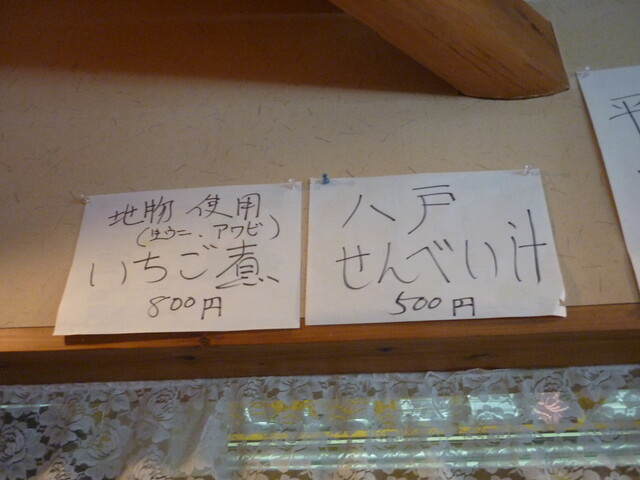 地物使用
(生ウニ、アワビ)
いちご煮
800円
八戸
せんべい汁
500円
平